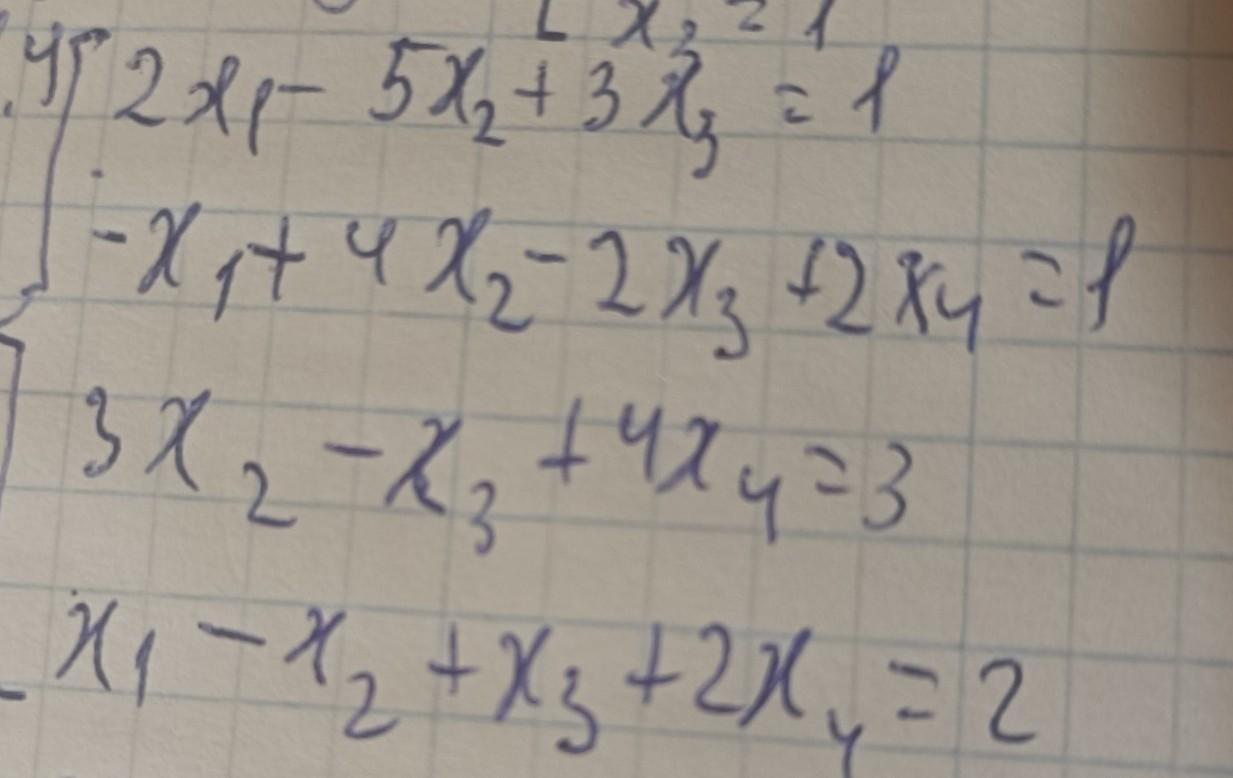 x₃ = 1
4) 2x₁ - 5x₂ + 3x₃ = 1
-x₁ + 4x₂ - 2x₃ + 2x₄ = 1
3x₂ - x₃ + 4x₄ = 3
x₁ - x₂ + x₃ + 2x₄ = 2